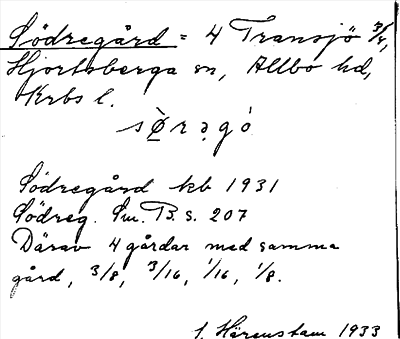 Södregård = 4 Transjö 3/8,
Hjortsberga sn, Allbo hd,
Krbs l.
sø̀rəgó
Södregård kb 1931
Södreg. Sm. B. s. 207
Därav 4 gårdar med samma
gård, 3/8, 3/16, 1/16, 1/8.
Härenstam 1933